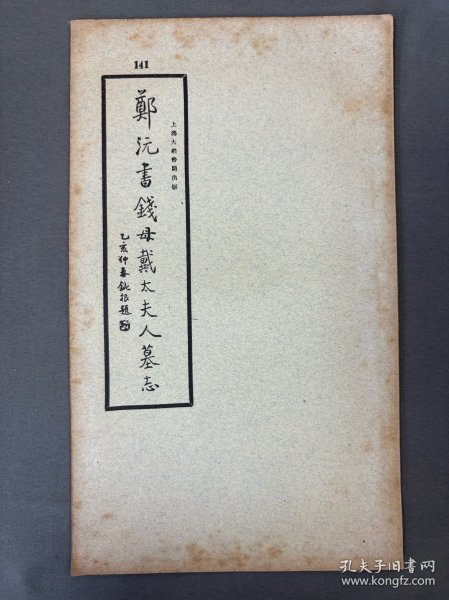 141
上海大眾書局出版
鄭沅書錢母戴太夫人墓志
乙亥仲春鈍根題
孔夫子旧书网
www.kongfz.com